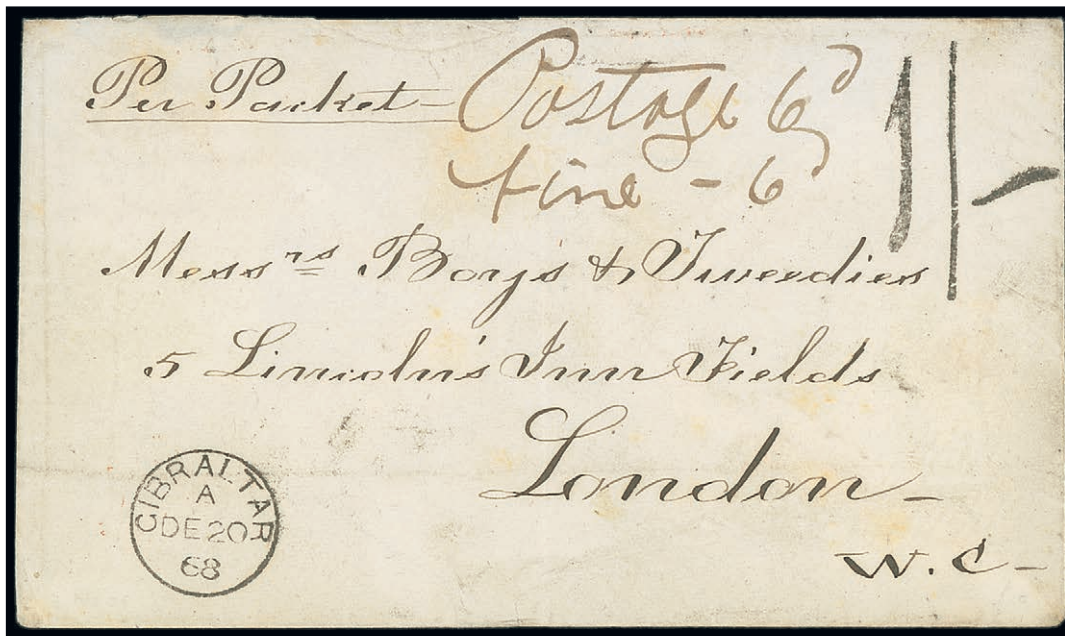 Per Packet -
Postage 6d
fine - 6d
1/-
Messrs Boys & Tweedies
5 Lincoln's Inn Fields
London -
W. C -
GIBRALTAR
A
DE 20
68